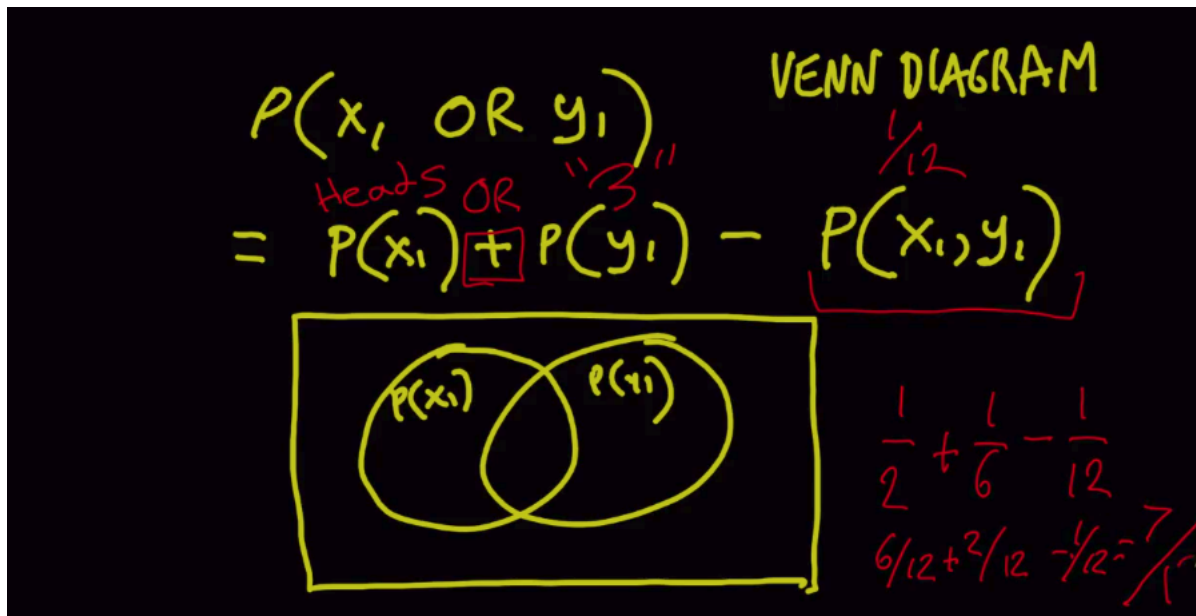 VENN DIAGRAM
P(x₁ OR y₁)
1/12
Heads OR "3"
= P(x₁) + P(y₁) - P(x₁,y₁)
P(x₁) P(y₁)
1/2 + 1/6 - 1/12
6/12 + 2/12 - 1/12 = 7/1